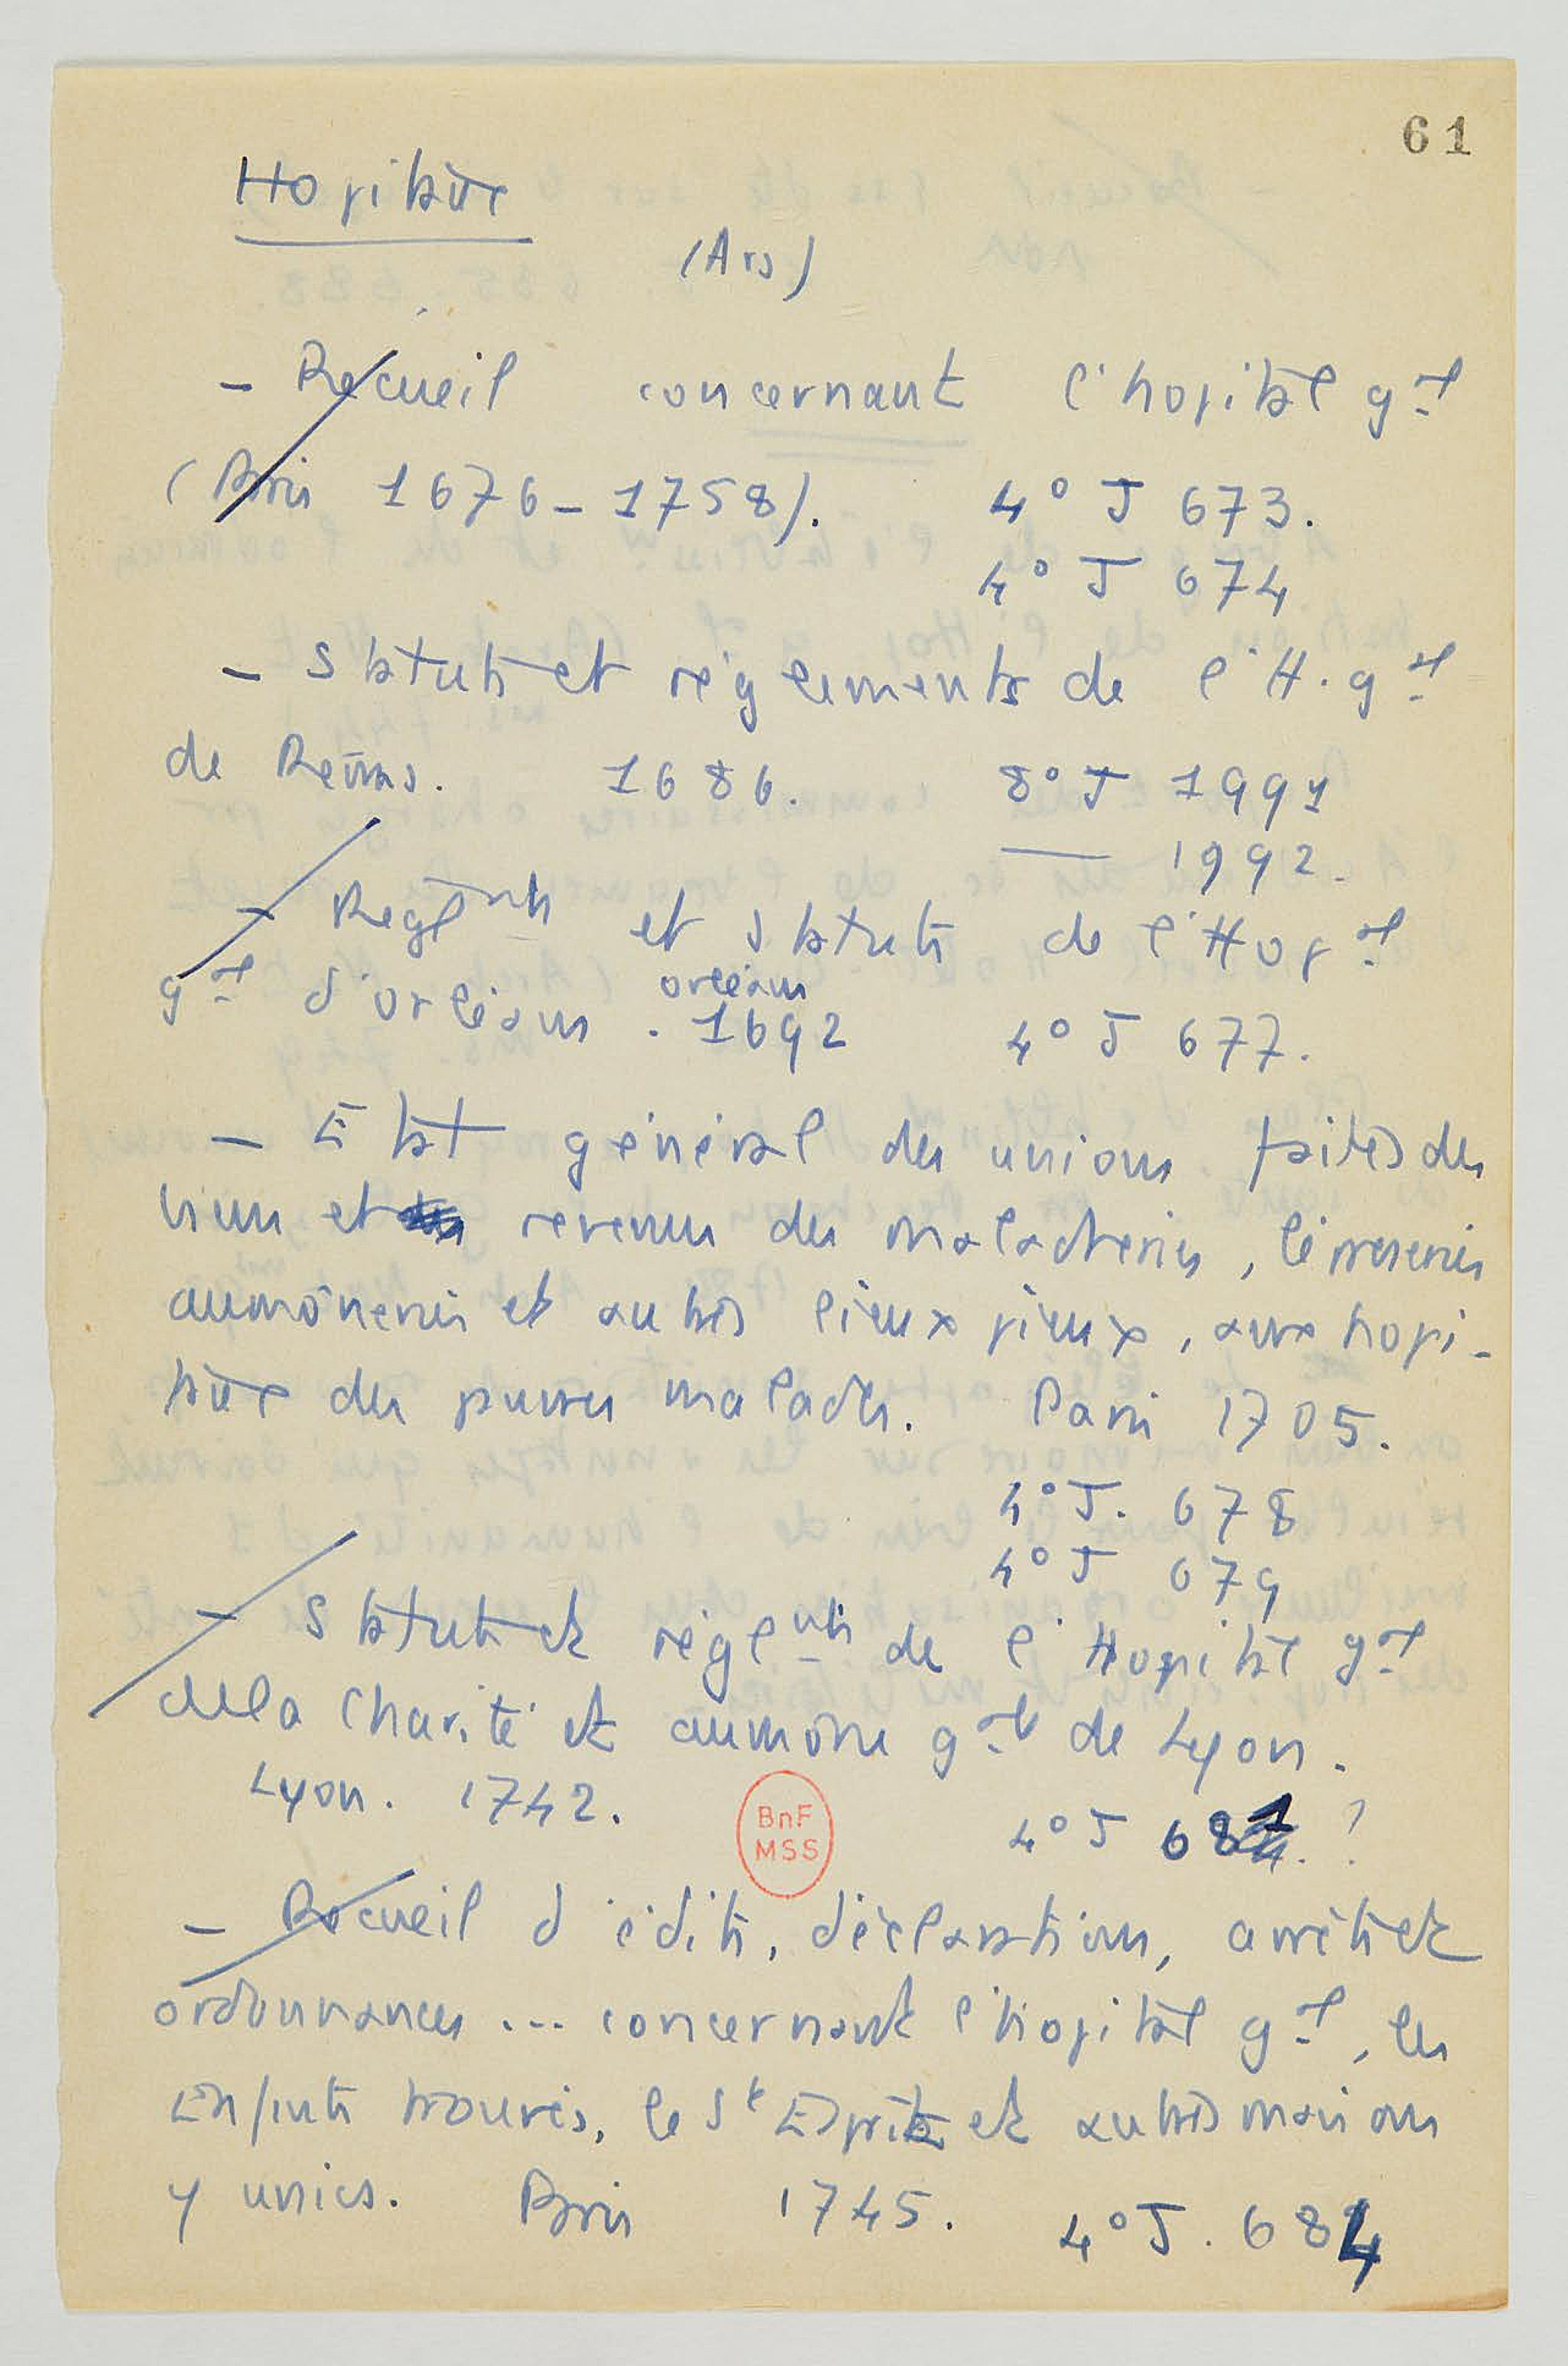 61
Hopitaux
(Ars)
- Recueil concernant l'hopital gal
(Paris 1676-1758). 4° J 673.
4° J 674
- Statuts et règlements de l'H. gal
de Reims. 1686. 8° J 1991
— 1992.
- Reglmts et statuts de l'Hopal
gal d'orléans. orléans 1692 4° J 677.
- Etat général des unions faites des
biens et revenus des maladreries, léproseries
aumôneries et autres lieux pieux, aux hopi-
taux des pauvres malades. Paris 1705.
4° J. 678
4° J 679
- Statuts et règlmts de l'Hopital gal
de la Charité et aumône gale de Lyon.
Lyon. 1742. 4° J 681 ?
BnF
MSS
- Recueil d'édits, déclarations, arrêts et
ordonnances ... concernant l'hopital gal, les
Enfants trouvés, le St Esprit et autres maisons
y unies. Paris 1745. 4° J. 684